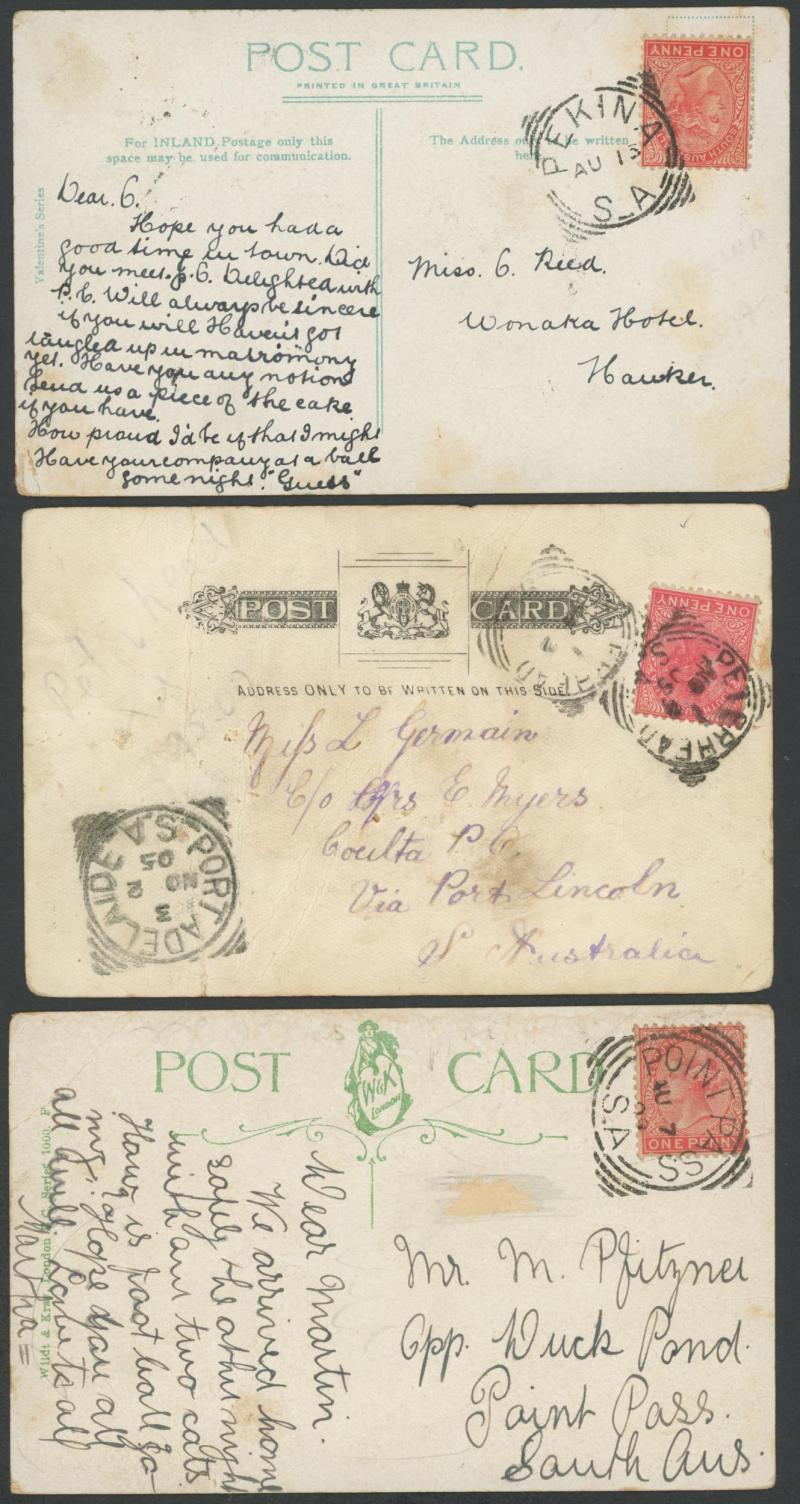 POST CARD.
PRINTED IN GREAT BRITAIN
For INLAND Postage only this
space may be used for communication.
The Address only to be written
here.
Valentine's Series
ONE PENNY
PEKINA
AU 13
S.A
Dear. G.
Hope you had a
good time in town. Did
you meet. J. G. Delighted with
P.C. Will always be sincere
if you will Haven't got
tangled up in matromony
yet. Have you any notions
Send us a piece of the cake
if you have.
How proud I'd be if that I might
Have your company at a ball
some night. "Guess"
Miss. G. Reed.
Wonaka Hotel.
Hawker.
POST CARD
ADDRESS ONLY TO BE WRITTEN ON THIS SIDE.
ONE PENNY
PETERHEAD
S.A
Miss L Germain
C/o Mrs E. Myers
Coulta P.O.
Via Port Lincoln
S. Australia
PORT ADELAIDE
S.A.
3 Q
NO
05
POST CARD
W&K
LONDON
ONE PENNY
POINT PASS
AU 7
S.A
Dear Martin.
We arrived home
safely the other night
with our two cats.
How is foot ball go-
ing. Hope you all
all well. Love to all
Martha =
Mr. M. Pfitzner
Opp. Duck Pond.
Point Pass.
South Aus.